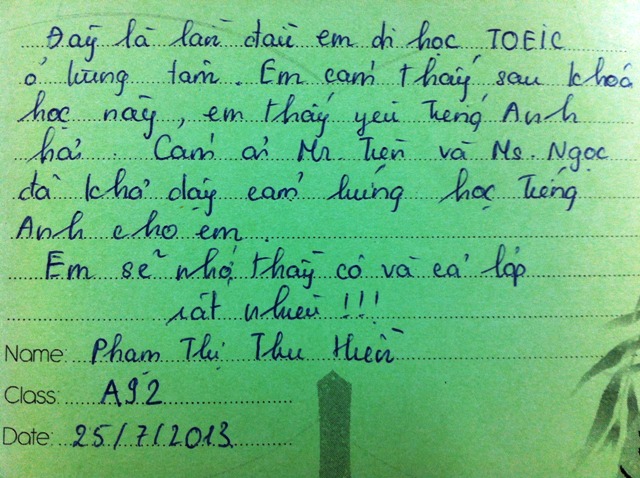 Đây là lần đầu em đi học TOEIC
ở trung tâm. Em cảm thấy sau khoá
học này, em thấy yêu Tiếng Anh
hơn. Cám ơn Mr. Tiến và Ms. Ngọc
đã khơi dậy cảm hứng học Tiếng
Anh cho em.
Em sẽ nhớ thầy cô và cả lớp
rất nhiều !!!
Name: Phạm Thị Thu Hiền
Class: A92
Date: 25/7/2013